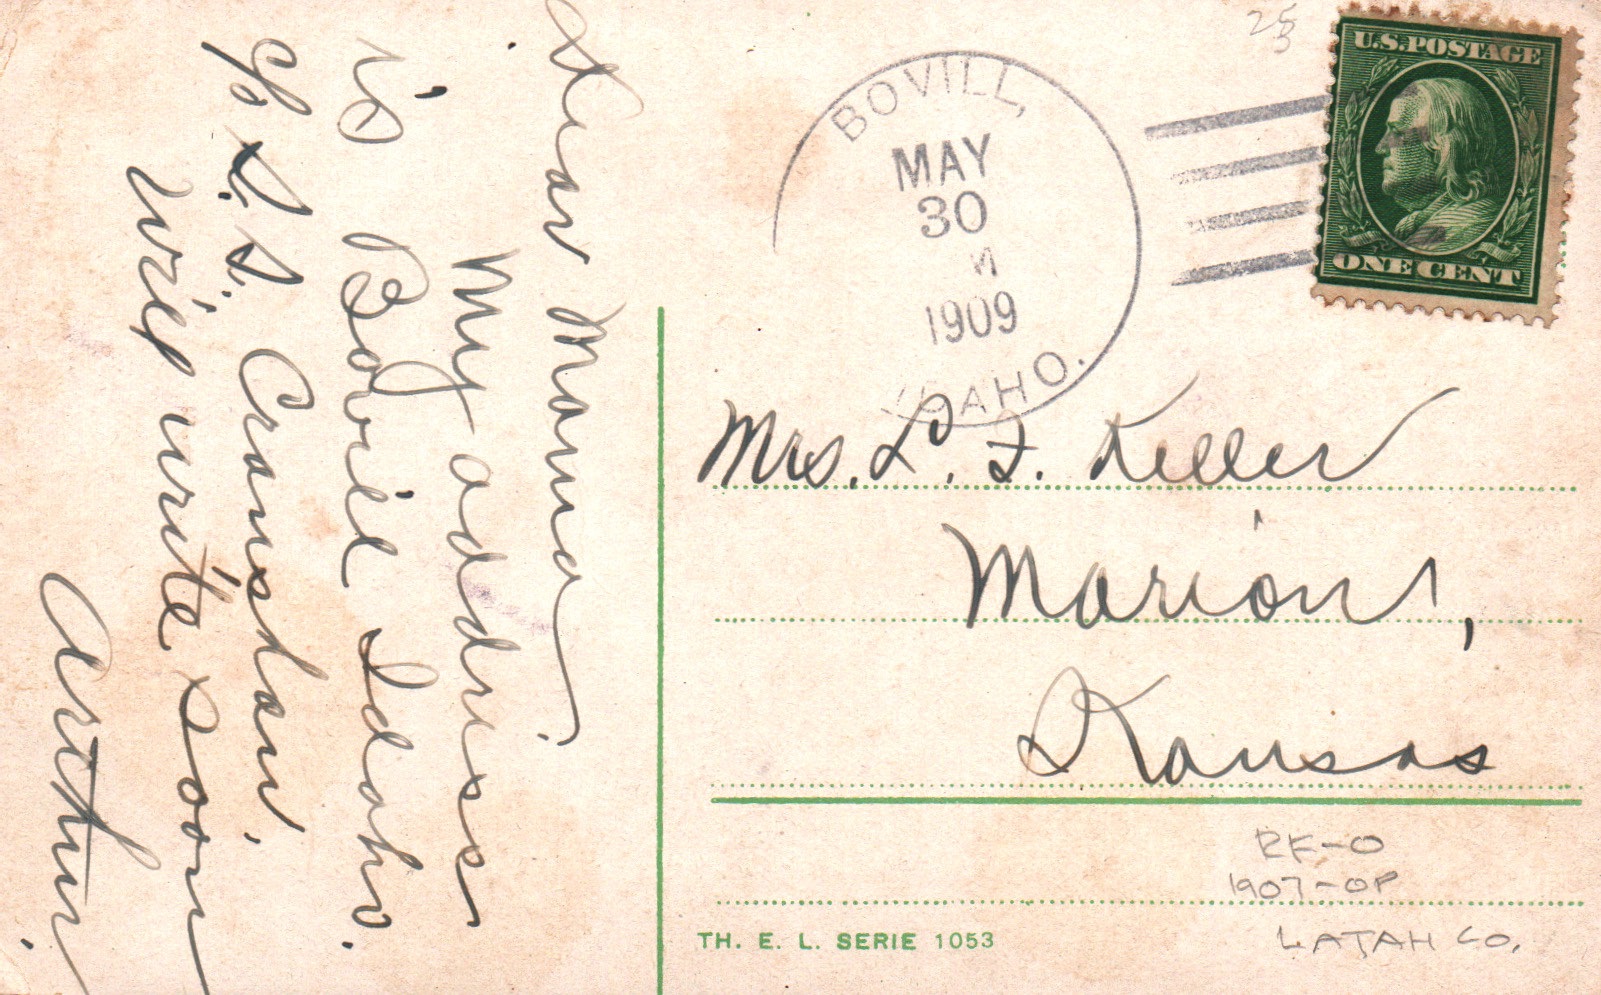 Dear Mama.
My address
is Bovill Idaho.
c/o L. S. Cranshaw.
Will write soon
Arthur.
25
3
BOVILL,
MAY
30
1909
IDAHO.
U.S. POSTAGE
ONE CENT
Mrs. L. F. Keller
Marion,
Kansas
RF-O
1907-OP
LATAH CO.
TH. E. L. SERIE 1053